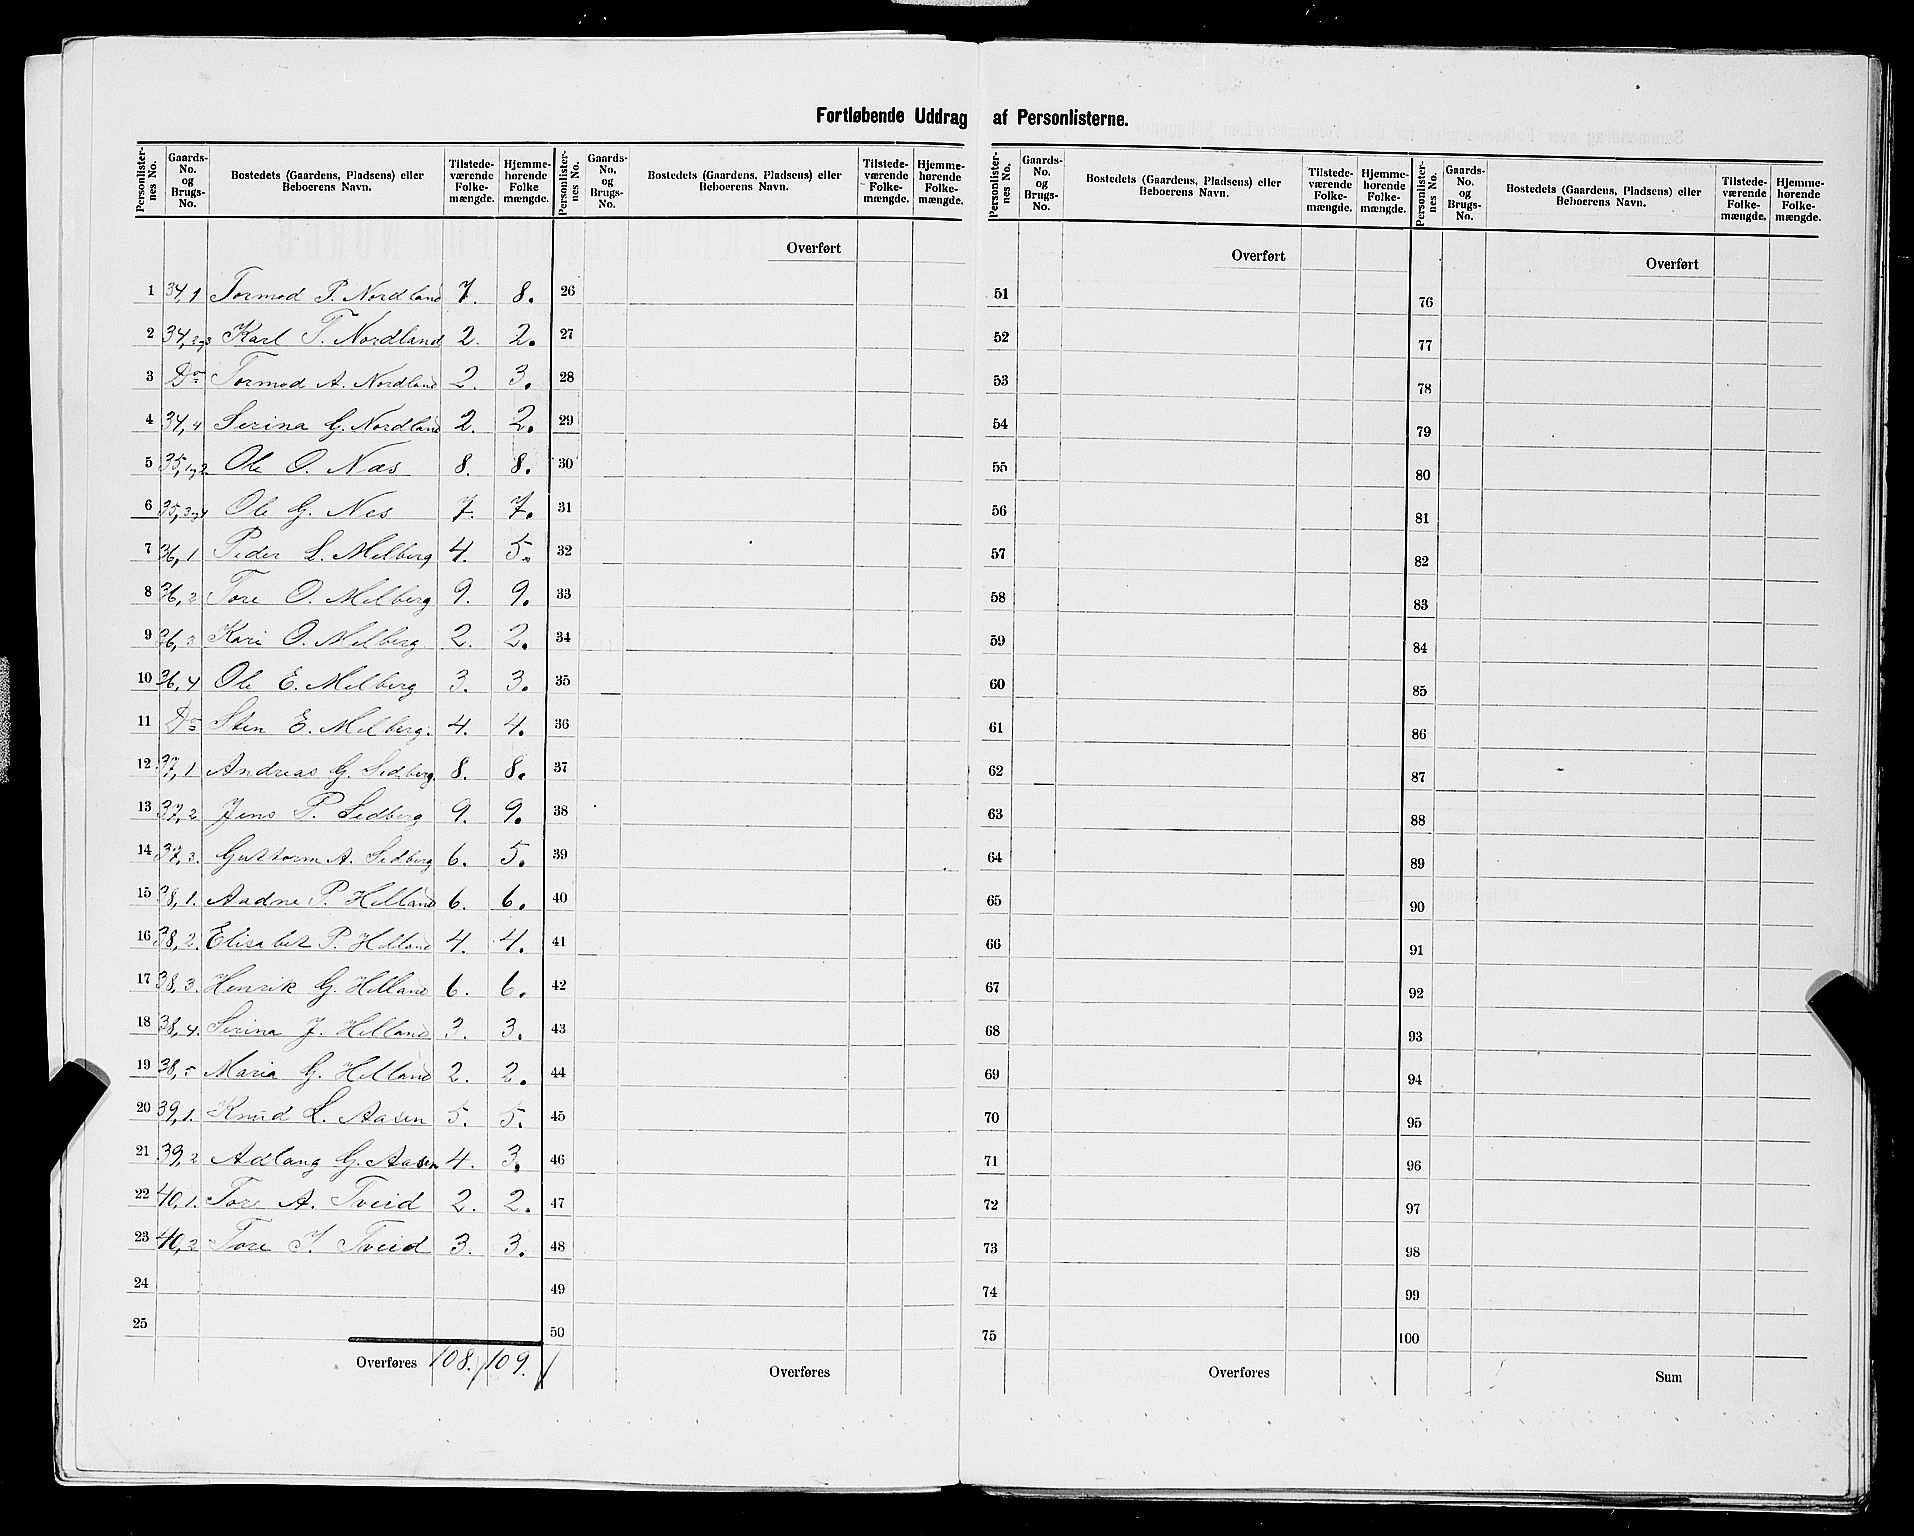 Fortløbende Uddrag af Personlisterne.
Personlisternes No. Gaards-No. og Brugs-No. Bostedets (Gaardens, Pladsens) eller Beboerens Navn. Tilstedeværende Folkemængde. Hjemmehørende Folkemængde.
Personlisternes No. Gaards-No. og Brugs-No. Bostedets (Gaardens, Pladsens) eller Beboerens Navn. Tilstedeværende Folkemængde. Hjemmehørende Folkemængde.
Personlisternes No. Gaards-No. og Brugs-No. Bostedets (Gaardens, Pladsens) eller Beboerens Navn. Tilstedeværende Folkemængde. Hjemmehørende Folkemængde.
Personlisternes No. Gaards-No. og Brugs-No. Bostedets (Gaardens, Pladsens) eller Beboerens Navn. Tilstedeværende Folkemængde. Hjemmehørende Folkemængde.
Overført Overført Overført
1 34,1 Tormod P. Nordland 7. 8. 26 51 76
2 34,2,3 Karl T. Nordland 2. 2. 27 52 77
3 Do Tormod A. Nordland 2. 3. 28 53 78
4 34,4 Serina G. Nordland 2. 2. 29 54 79
5 35,1,2 Ole O. Nes 8. 8. 30 55 80
6 35,3,4 Ole G. Nes 7. 7. 31 56 81
7 36,1 Peder L. Melberg 4. 5. 32 57 82
8 36,2 Tore O. Melberg 9. 9. 33 58 83
9 36,3 Kari O. Melberg. 2. 2. 34 59 84
10 36,4 Ole E. Melberg 3. 3. 35 60 85
11 Do Sten E. Melberg. 4. 4. 36 61 86
12 37,1 Andreas G. Sedberg. 8. 8. 37 62 87
13 37,2 Jens P. Sedberg 9. 9. 38 63 88
14 37,3. Guttorm A. Sedberg 6. 5. 39 64 89
15 38,1. Aadne P. Helland 6. 6. 40 65 90
16 38,2. Elisabet P. Helland 4. 4. 41 66 91
17 38,3. Henrik G. Helland 6. 6. 42 67 92
18 38,4. Serina J. Helland 3. 3. 43 68 93
19 38,5 Maria G. Helland 2. 2. 44 69 94
20 39,1. Knud L. Aasen 5. 5. 45 70 95
21 39,2 Adlaug G. Aasen 4. 3. 46 71 96
22 40,1. Tore A. Tveid 2. 2. 47 72 97
23 40,2 Tore J. Tveid 3. 3. 48 73 98
24 49 74 99
25 50 75 100
Overføres 108. 109. Overføres Overføres Sum